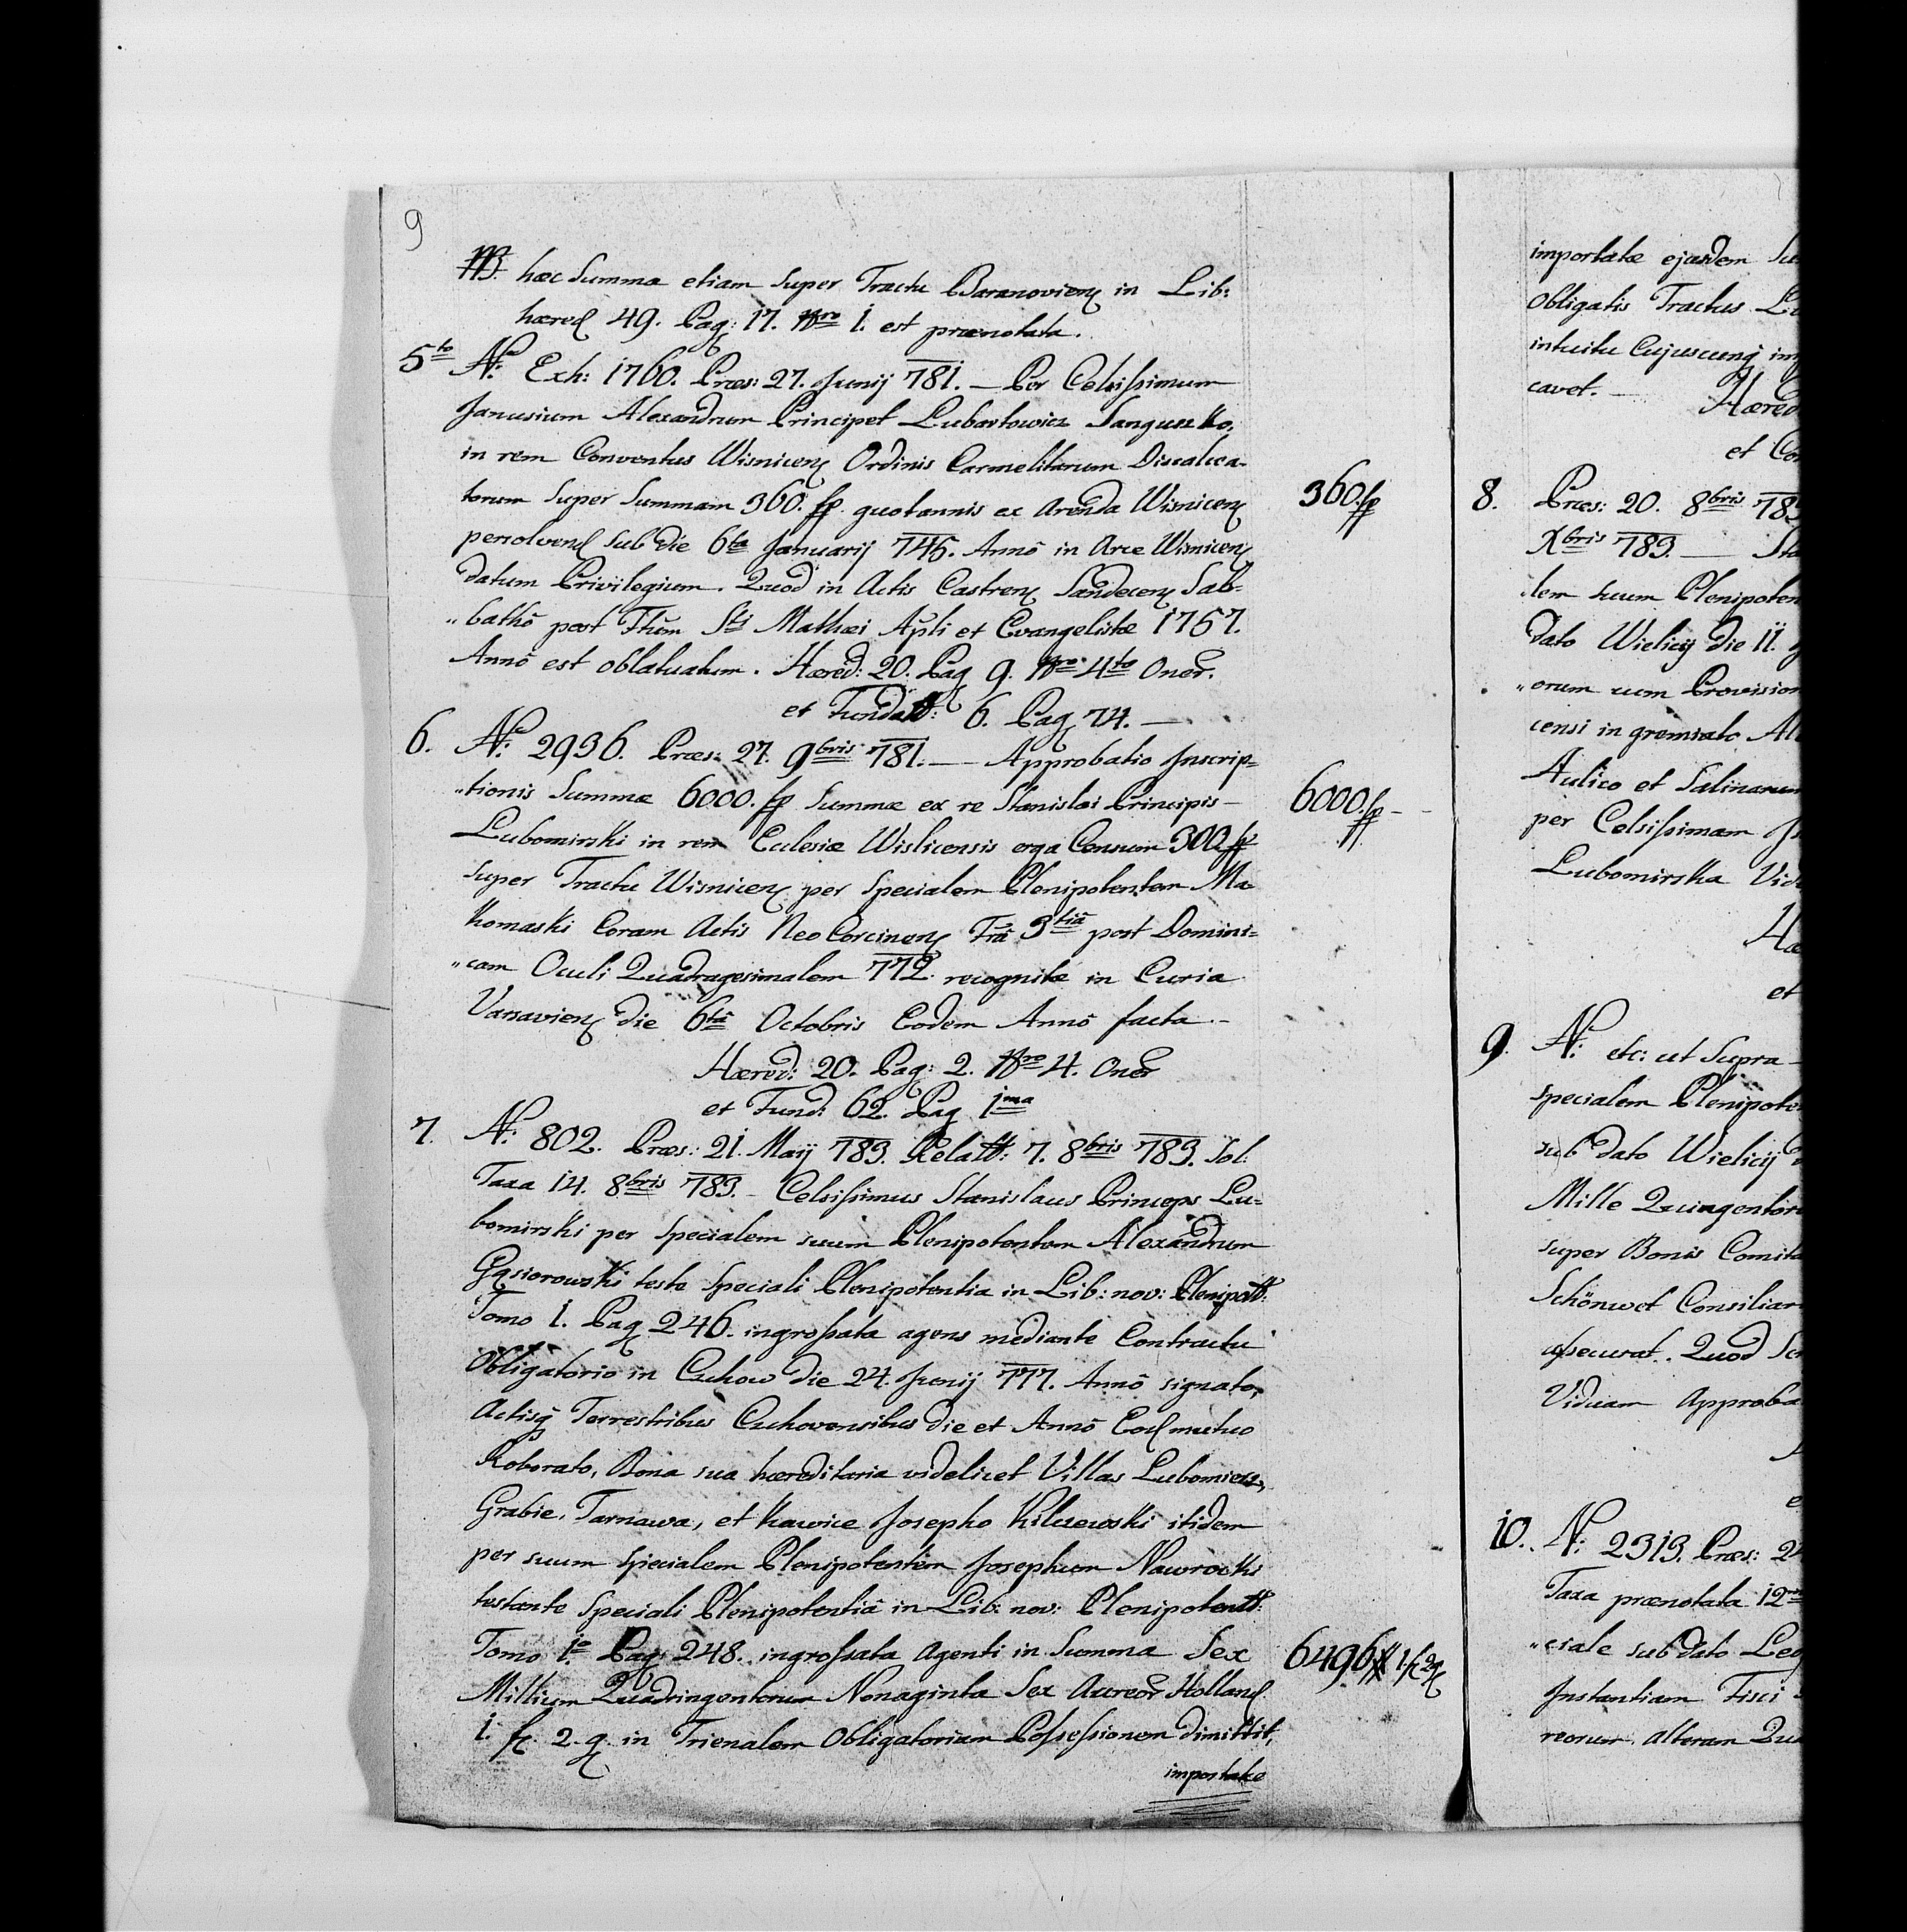 9
NB. hæc Summa etiam super Tractu Baranoviens in Lib:
hæred 49. Pag: 17. Nro 1. est prænotata.
5to No: Exh: 1760. Præs: 27. Junij 781. — Per Celsissimum
Janusium Alexandrum Principem Lubartowicz Sanguszko,
in rem Conventus Wisnicens Ordinis Carmelitarum Discalcea-
torum super Summam 360. fp. quotannis ex Arenda Wisnicens
persolvend sub die 6ta Januarij 745. Annô in Arce Wisnicens
datum Privilegium. Quod in Actis Castrens Sandecens Sab-
„bathô post Ftûm Sti Mathæi Apli et Evangelistæ 1757.
Annô est oblatuatum. Hæred: 20. Pag 9. Nro 4to Oner.
et Fundatt: 6. Pag 74. —
360. fp
6. No: 2936. Præs: 27. 9bris 781. — Approbatio Inscrip-
„tionis Summæ 6000. fp Summæ ex re Stanislai Principis —
Lubomirski in rem Eclesiæ Wislicensis erga Censum 300 fp
super Tractu Wisnicens per specialem Plenipotentem Ma-
komaski Coram Actis NeoCorcinens Friâ 3tiâ post Domini=
„cam Oculi Quadragesimalem 772. recognitæ in Curia
Varsaviens die 6tâ Octobris Eodem Annô facta. —
Hæred: 20. Pag: 2. Nro 4. Oner
et Fund: 62. Pag 1ma
6000. fp —
7. No: 802. Præs: 21. Maij 783. Relatt: 7. 8bris 783. Sol:
Taxa 14. 8bris 783. — Celsissimus Stanislaus Princeps Lu-
bomirski per specialem suum Plenipotentem Alexandrum
Gąsiorowski teste speciali Plenipotentia in Lib: nov: Plenipott:
Tomo 1. Pag 246. ingrossata agens mediante Contractu
Obligatorio in Cuhow die 24. Junij 777. Annô signato,
Actisq Terrestribus Cuhovensibus die et Annô Eod mutuo
Roborato, Bona sua hæreditaria videlicet Villas Lubomierz,
Grabie, Tarnawa, et Kawice Josepho Kilczewski itidem
per suum specialem Plenipotentem Josephum Nawrocki
testante speciali Plenipotentiâ in Lib: nov: Plenipotentt:
Tomo 1o Pag: 248. ingrossata Agenti in Summa Sex
Millium Quadringentorum Nonaginta Sex Aureor Holland
1. f 2. g. in Trienalem Obligatoriam Possessionem dimittit,
importatæ
6496 # 1. f 2 g
importatæ ejusdem
Obligatis Tractus
intuitu Cujuscunq
cavet. —
Hæred
et
8. Præs: 20. 8bris 783
Xbris 783. —
lem suum Plenipoten
dato Wielicij die 11.
„orum cum Provision
censi in gremiale
Aulico et Salinarum
per Celsissimam
Lubomirska
Hæ
et
9. No: etc: ut Supra —
specialem Plenipote
sub dato Wielicij
Mille Quingentor
super Bonis Comita
Schönwet Consiliar
assecurat. Quod
Viduam Approba
10. No: 2313. Præs: 2
Taxa prænotata 12
„ciale sub dato
Instantiam Fisci
reorum. alteram